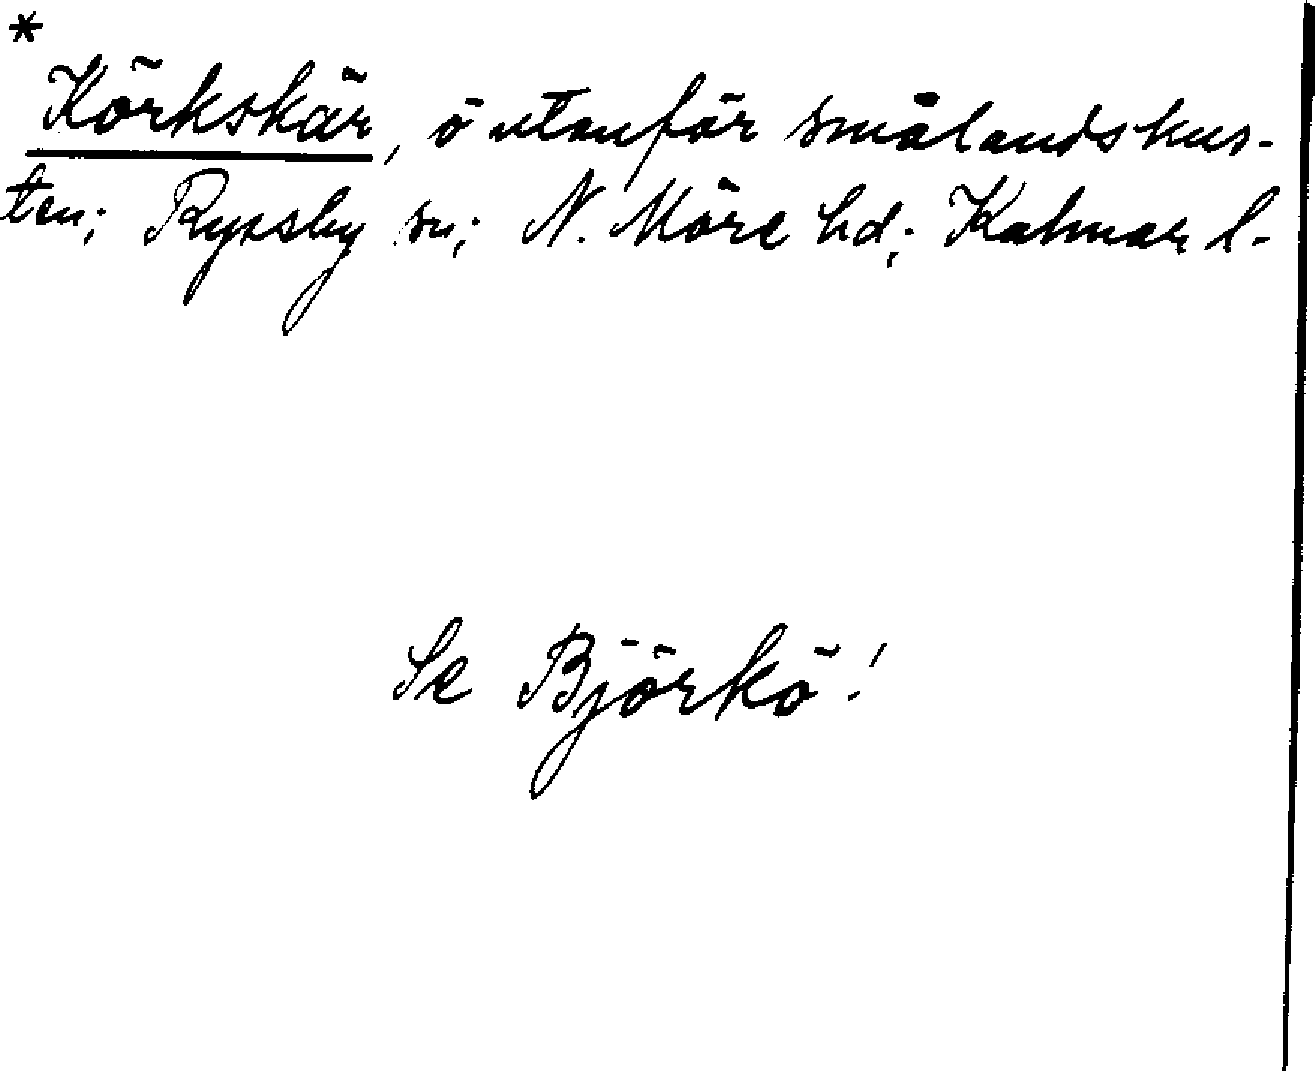 *
Körkskär, ö utanför smålandskus-
ten; Ryssby sn; N. Möre hd; Kalmar l.
Se Björkö!